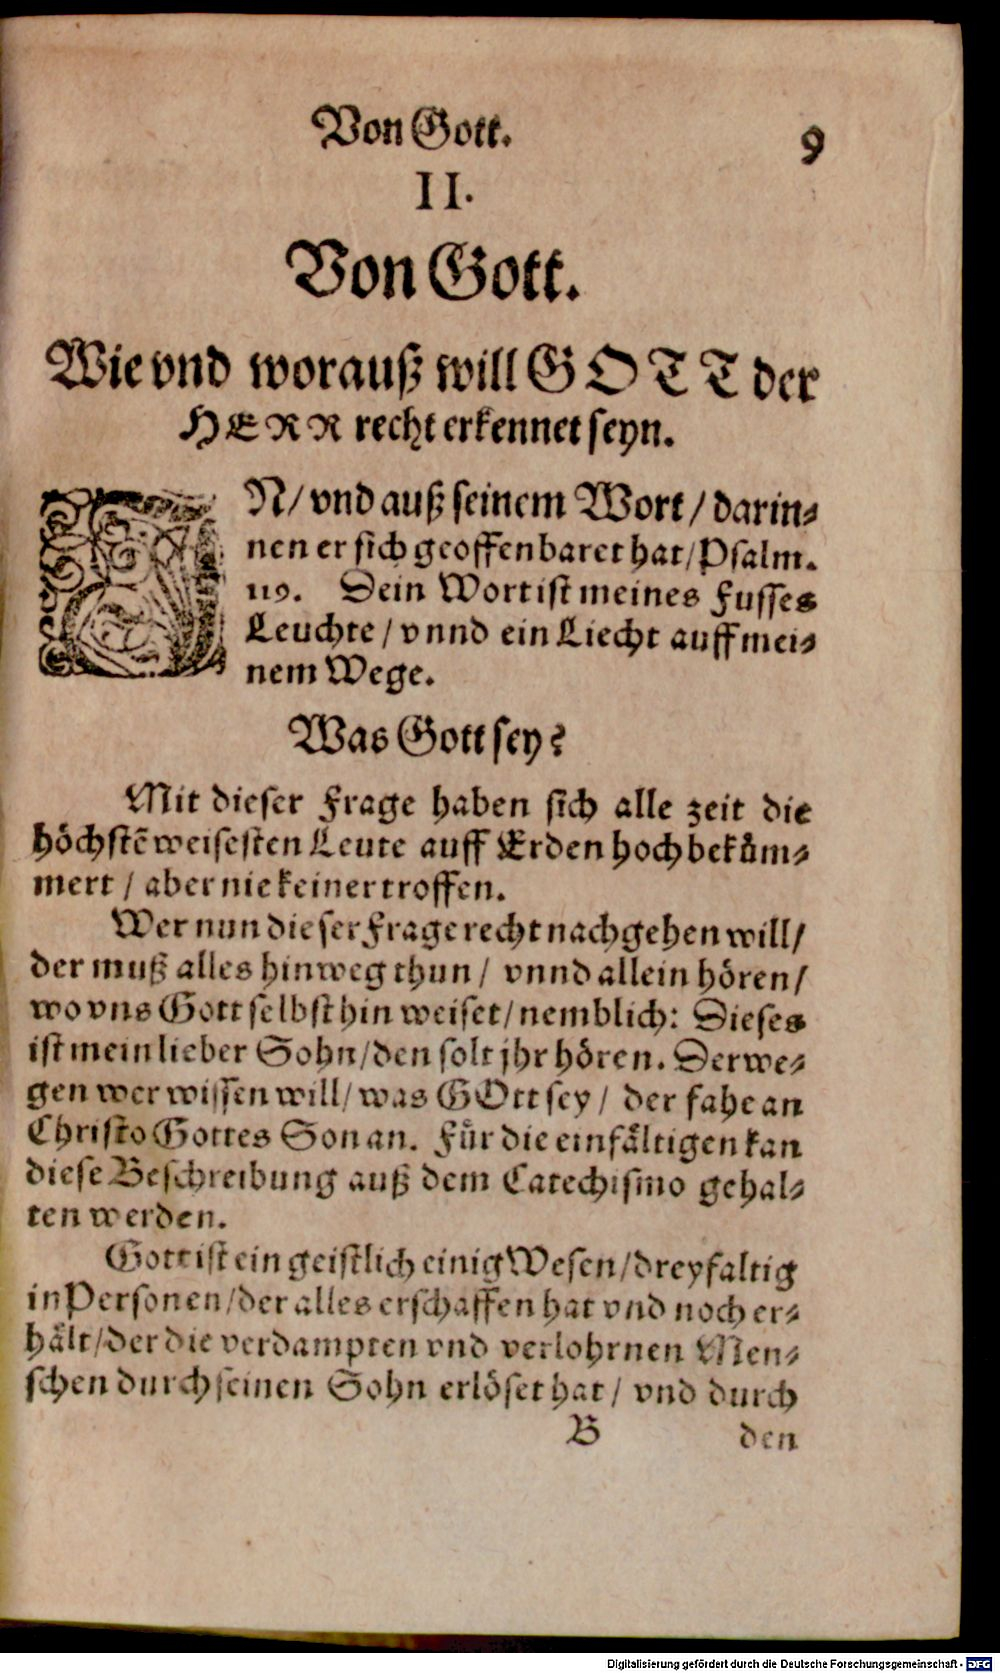 Von Gott. 9
II.
Von Gott.
Wie vnd worauß will GOTT der
HERR recht erkennet seyn.
IN/ vnd auß seinem Wort / darin-
nen er sich geoffenbaret hat/ Psalm.
119. Dein Wort ist meines Fusses
Leuchte / vnnd ein Liecht auff mei-
nem Wege.
Was Gott sey?
Mit dieser Frage haben sich alle zeit die
höchstẽ weisesten Leute auff Erden hoch beküm-
mert / aber nie keiner troffen.
Wer nun dieser Frage recht nachgehen will/
der muß alles hinweg thun / vnnd allein hören/
wo vns Gott selbst hin weiset/ nemblich: Dieses
ist mein lieber Sohn/ den solt jhr hören. Derwe-
gen wer wissen will/ was GOtt sey / der fahe an
Christo Gottes Son an. Für die einfältigen kan
diese Beschreibung auß dem Catechismo gehal-
ten werden.
Gott ist ein geistlich einig Wesen/ dreyfaltig
in Personen/ der alles erschaffen hat vnd noch er-
hält/ der die verdampten vnd verlohrnen Men-
schen durch seinen Sohn erlöset hat/ vnd durch
B den
Digitalisierung gefördert durch die Deutsche Forschungsgemeinschaft - DFG